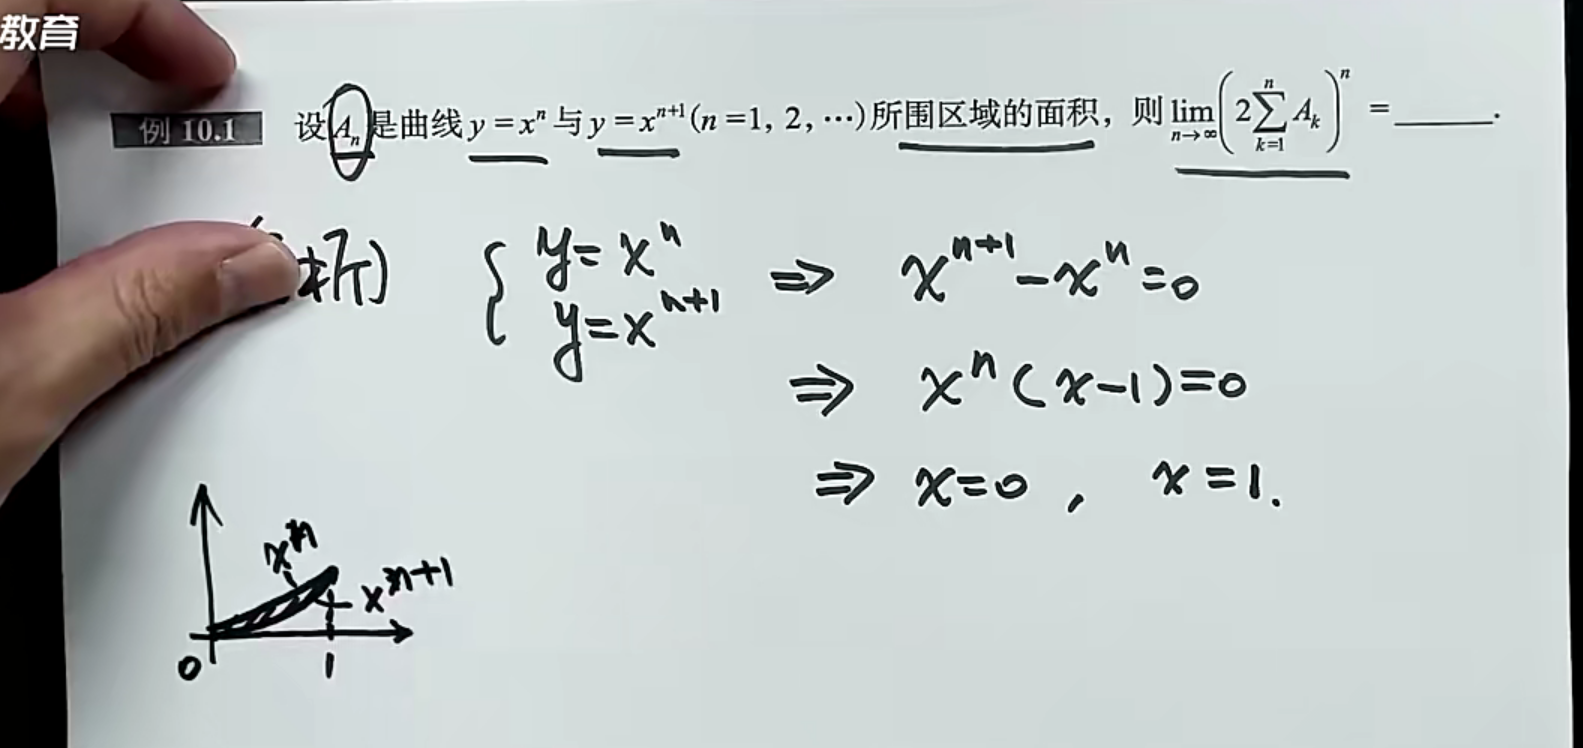 教育
例 10.1 设 Aₙ 是曲线 y = xⁿ 与 y = xⁿ⁺¹ (n = 1, 2, …) 所围区域的面积，则 lim_{n→∞} (2∑_{k=1}^{n} Aₖ)ⁿ = ______.
析)
{ y = xⁿ ⇒ xⁿ⁺¹ - xⁿ = 0
y = xⁿ⁺¹
⇒ xⁿ (x-1) = 0
⇒ x = 0 , x = 1.
xⁿ
xⁿ⁺¹
0 1